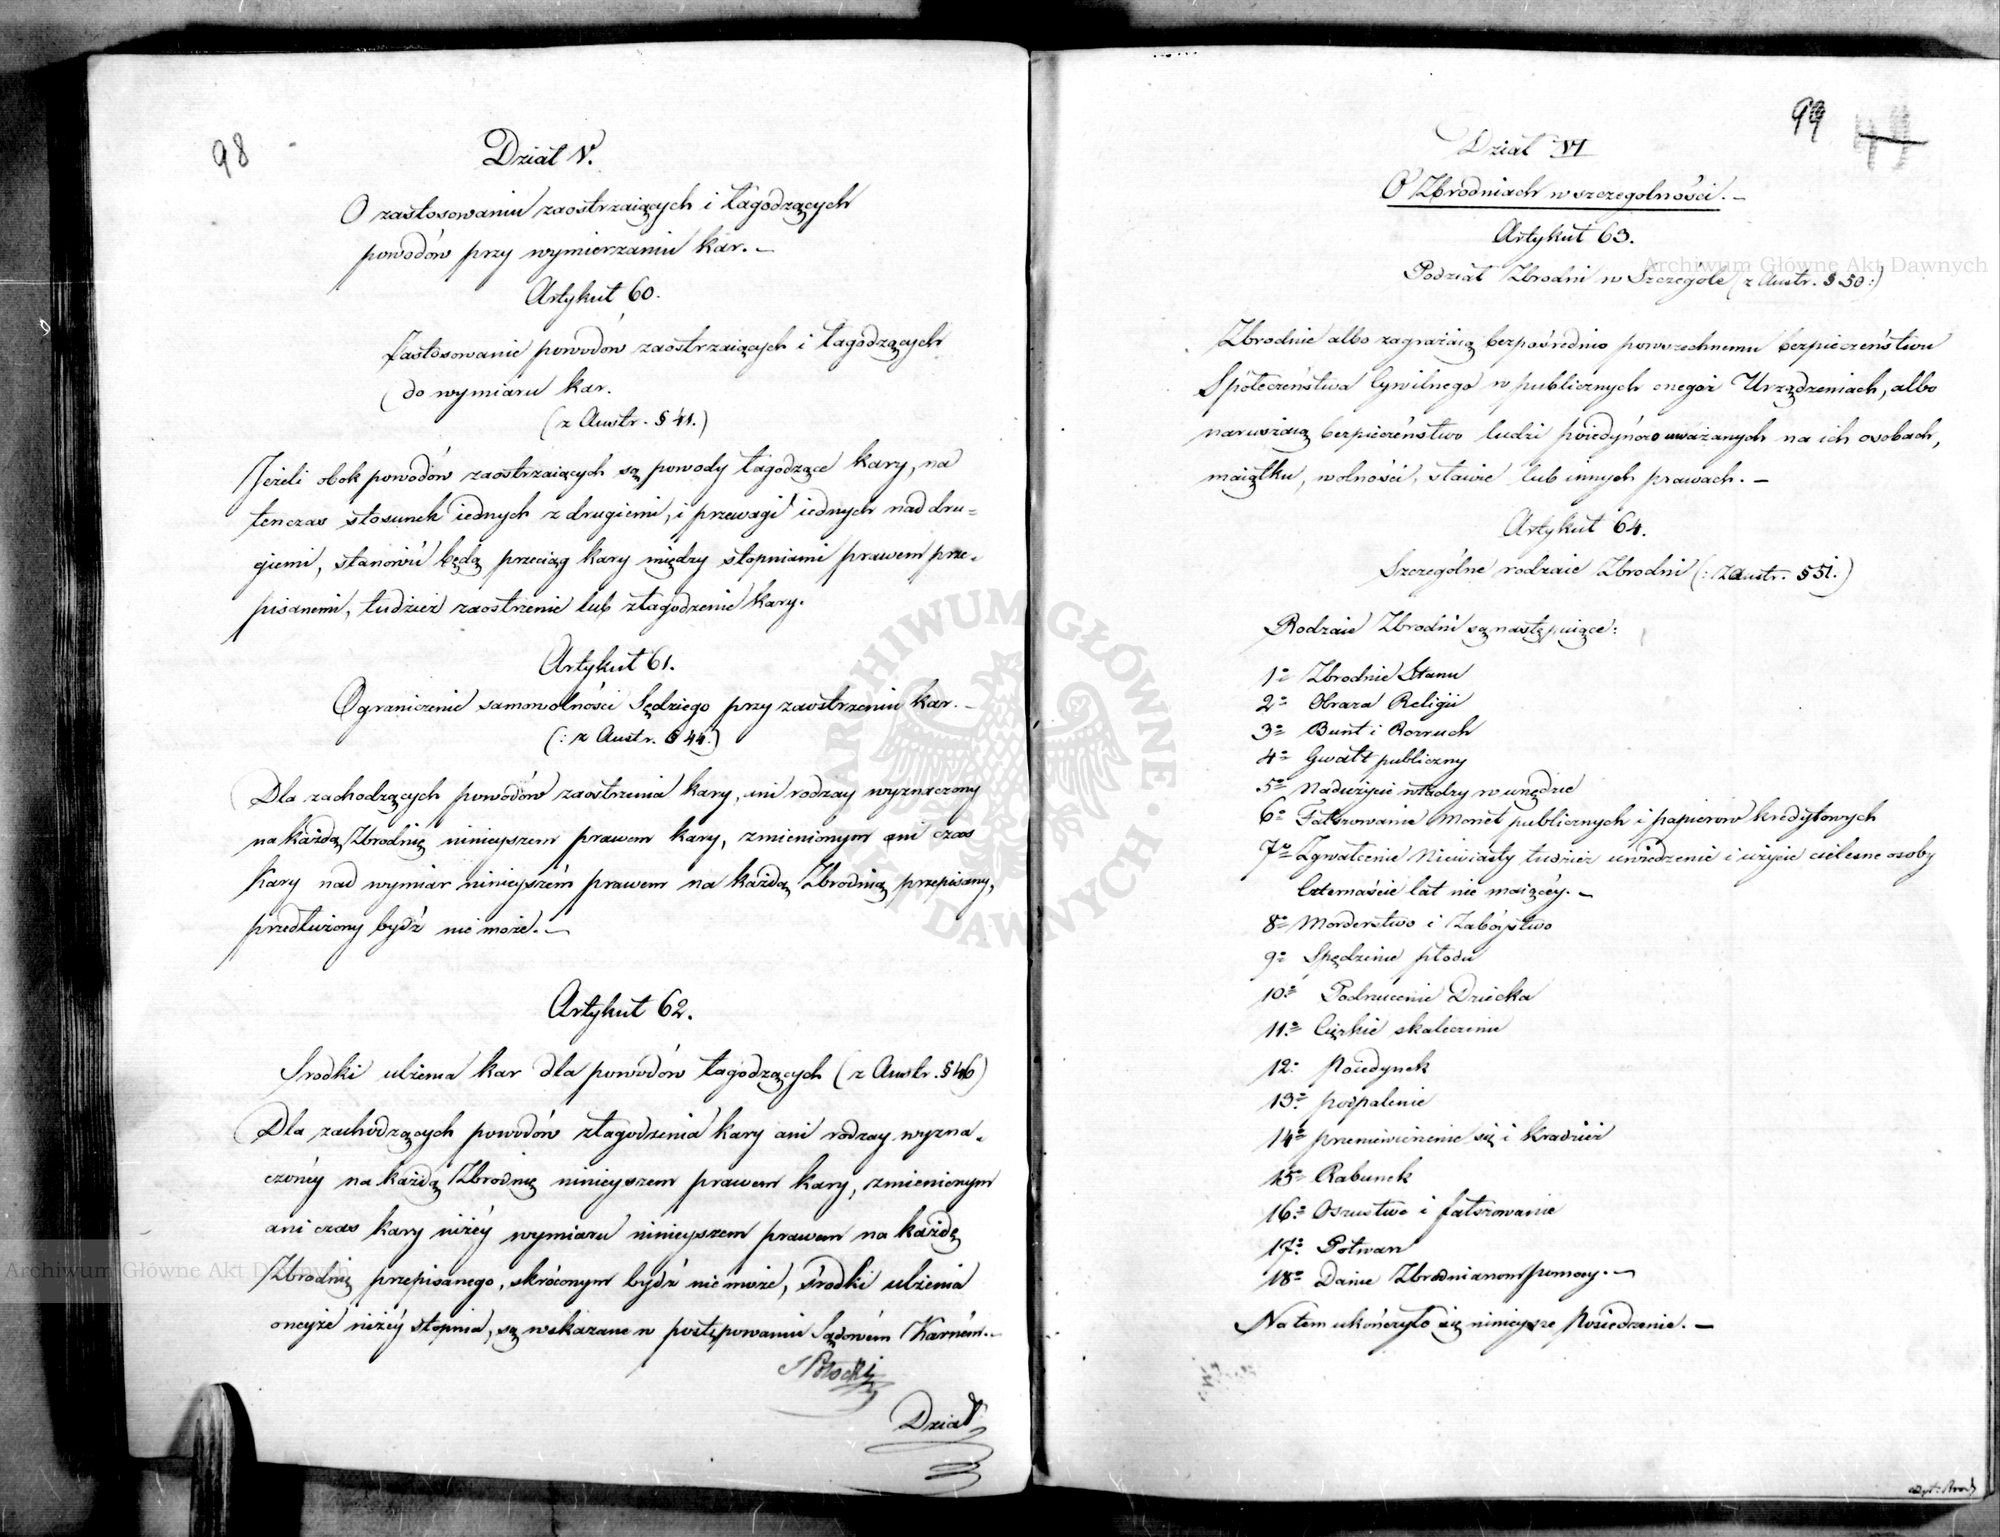 98
Dział V.
O zastosowaniu zaostrzaiących i łagodzących
powodów przy wymierzaniu kar. –
Artykuł 60.
Zastosowanie powodów zaostrzaiących i łagodzących
do wymiaru kar.
(z Austr. § 41.)
Jeżeli obok powodów zaostrzaiących są powody łagodzące kary, na
ten czas stosunek iednych z drugiemi, i przewagi iednych nad dru=
giemi, stanowić będą przeciąg kary między stopniami prawem prze=
pisanemi, tudzież zaostrzenie lub złagodzenie kary.
Artykuł 61.
Ograniczenie samowolności Sędziego przy zaostrzeniu kar. –
(: z Austr. § 44.)
Dla zachodzących powodów zaostrzenia kary, ani rodzay wyznaczony
na każdą Zbrodnię ninieyszem prawem kary, zmienionym ani czas
kary nad wymiar ninieyszém prawem na każdą Zbrodnią przepisany,
przedłużony bydź nie może. –
Artykuł 62.
Srodki ulżenia kar dla powodów łagodzących (z Austr. § 46)
Dla zachodzących powodów złagodzenia kary ani rodzay wyzna=
czonéy na każdą Zbrodnię ninieyszem prawem kary, zmienionym
ani czas kary niżéy wymiaru ninieyszem prawem na każdę
Zbrodnię przepisanego, skróconym bydź nie może, środki ulżenia
oneyże niżéy stopnia, są wskazane w postępowaniu Sądowém Karném. –
Potocki
Dział
99
Dział VI
O Zbrodniach w szczegolności. –
Artykuł 63.
Podział Zbrodni w Szczegole (z Austr. § 50:)
Zbrodnie albo zagrażaią bezpośrednio powszechnemu bezpieczeństwu
Społeczeństwa Cywilnego w publicznych onegoż Urządzeniach, albo
naruszaią bezpieczeństwo ludzi poiedyńczo uważanych na ich osobach,
maiątku, wolności, sławie lub innych prawach. –
Artykuł 64.
Szczególne rodzaie Zbrodni (: z Austr. § 51.)
Rodzaie Zbrodni są następuiące:
1o Zbrodnie Stanu
2o Obraza Religii
3o Bunt i Rozruch
4o Gwałt publiczny
5o Nadużycie władzy w urzędzie
6o Fałszowanie Monet publicznych i papierow kredytowych
7o Zgwałcenie Niewiasty tudzież uwiedzenie i użycie cielesne osoby
Czternaście lat nie maiącéy. –
8o Morderstwo i Zabóystwo
9o Spędzenie płodu
10o Podrzucenie Dziecka
11o Ciężkie skaleczenie
12o Poiedynek
13o podpalenie
14o przeniewierzenie się i kradzież
15o Rabunek
16o Oszustwo i fałszowanie
17o Potwarz
18o Danie Zbrodniarzom pomocy. –
Na tem ukończyło się ninieysze Posiedzenie. –
Archiwum Główne Akt Dawnych
Archiwum Główne Akt Dawnych
ARCHIWUM GŁÓWNE AKT DAWNYCH